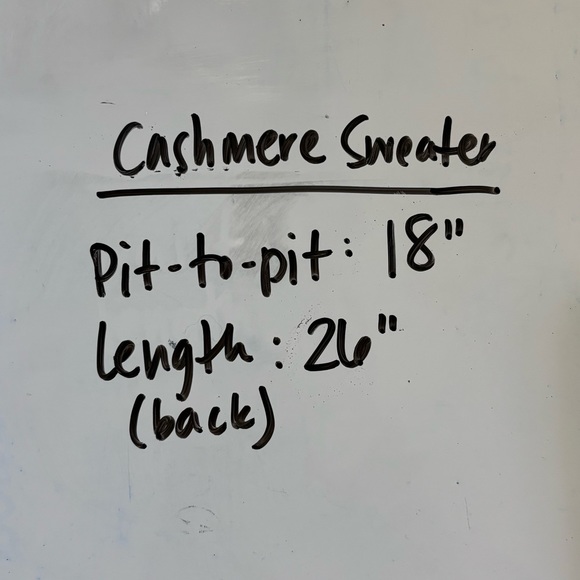 Cashmere Sweater
Pit-to-pit: 18"
length: 26"
(back)